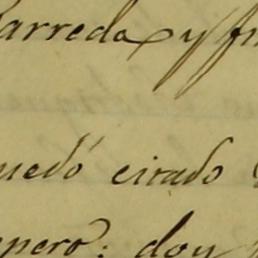 arreda y fu
uedó citado
pero: doy